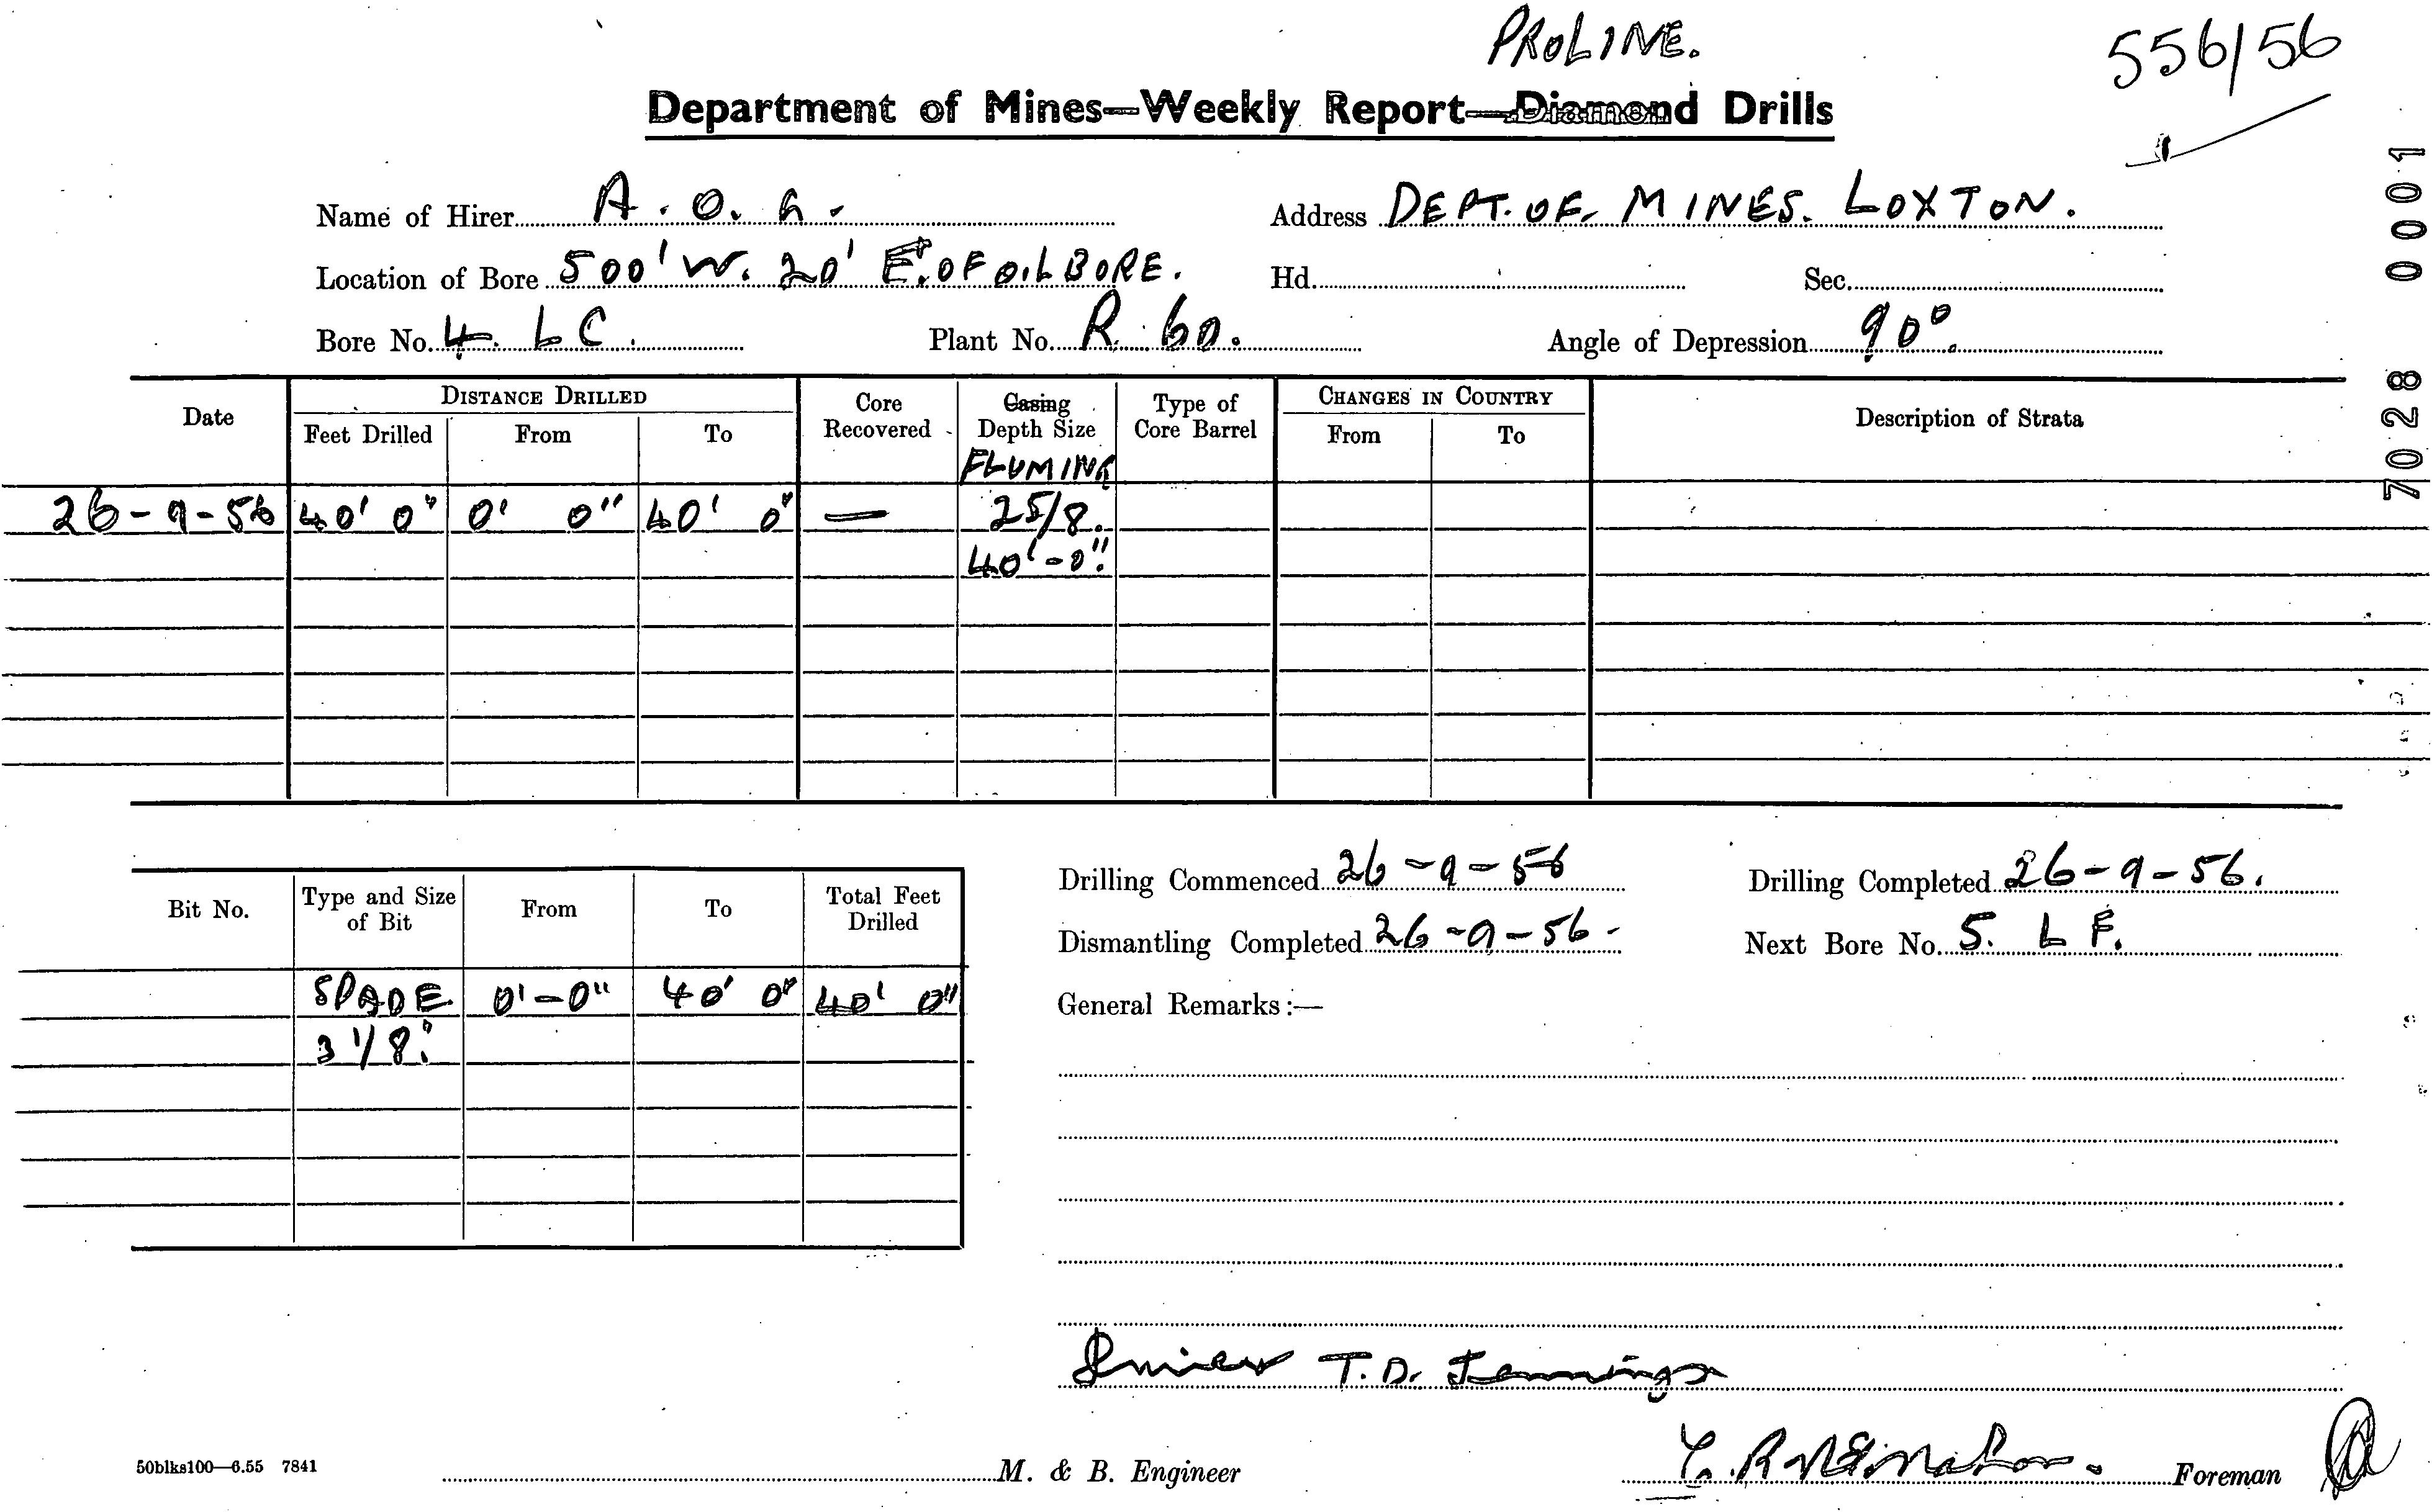 PROLINE.
556/56
Department of Mines—Weekly Report—Diamond Drills
Name of Hirer A. O. G. Address DEPT. OF. MINES. LOXTON.
Location of Bore 500' W. 20' E. OF OIL BORE. Hd. Sec.
Bore No. 4. L C. Plant No. R. 60. Angle of Depression 90°.
7028 0001
Date DISTANCE DRILLED Core Recovered Casing Depth Size Type of Core Barrel CHANGES IN COUNTRY Description of Strata
Feet Drilled From To From To
FLUMING
26-9-56 40' 0" 0' 0" 40' 0" — 25/8.
40'-0".
Drilling Commenced 26-9-56 Drilling Completed 26-9-56.
Bit No. Type and Size of Bit From To Total Feet Drilled
Dismantling Completed 26-9-56. Next Bore No. 5. L F.
SPADE. 0'-0" 40' 0" 40' 0"
General Remarks:—
3 1/8".
T. D. Jennings
50blks100—6.55 7841 M. & B. Engineer Foreman